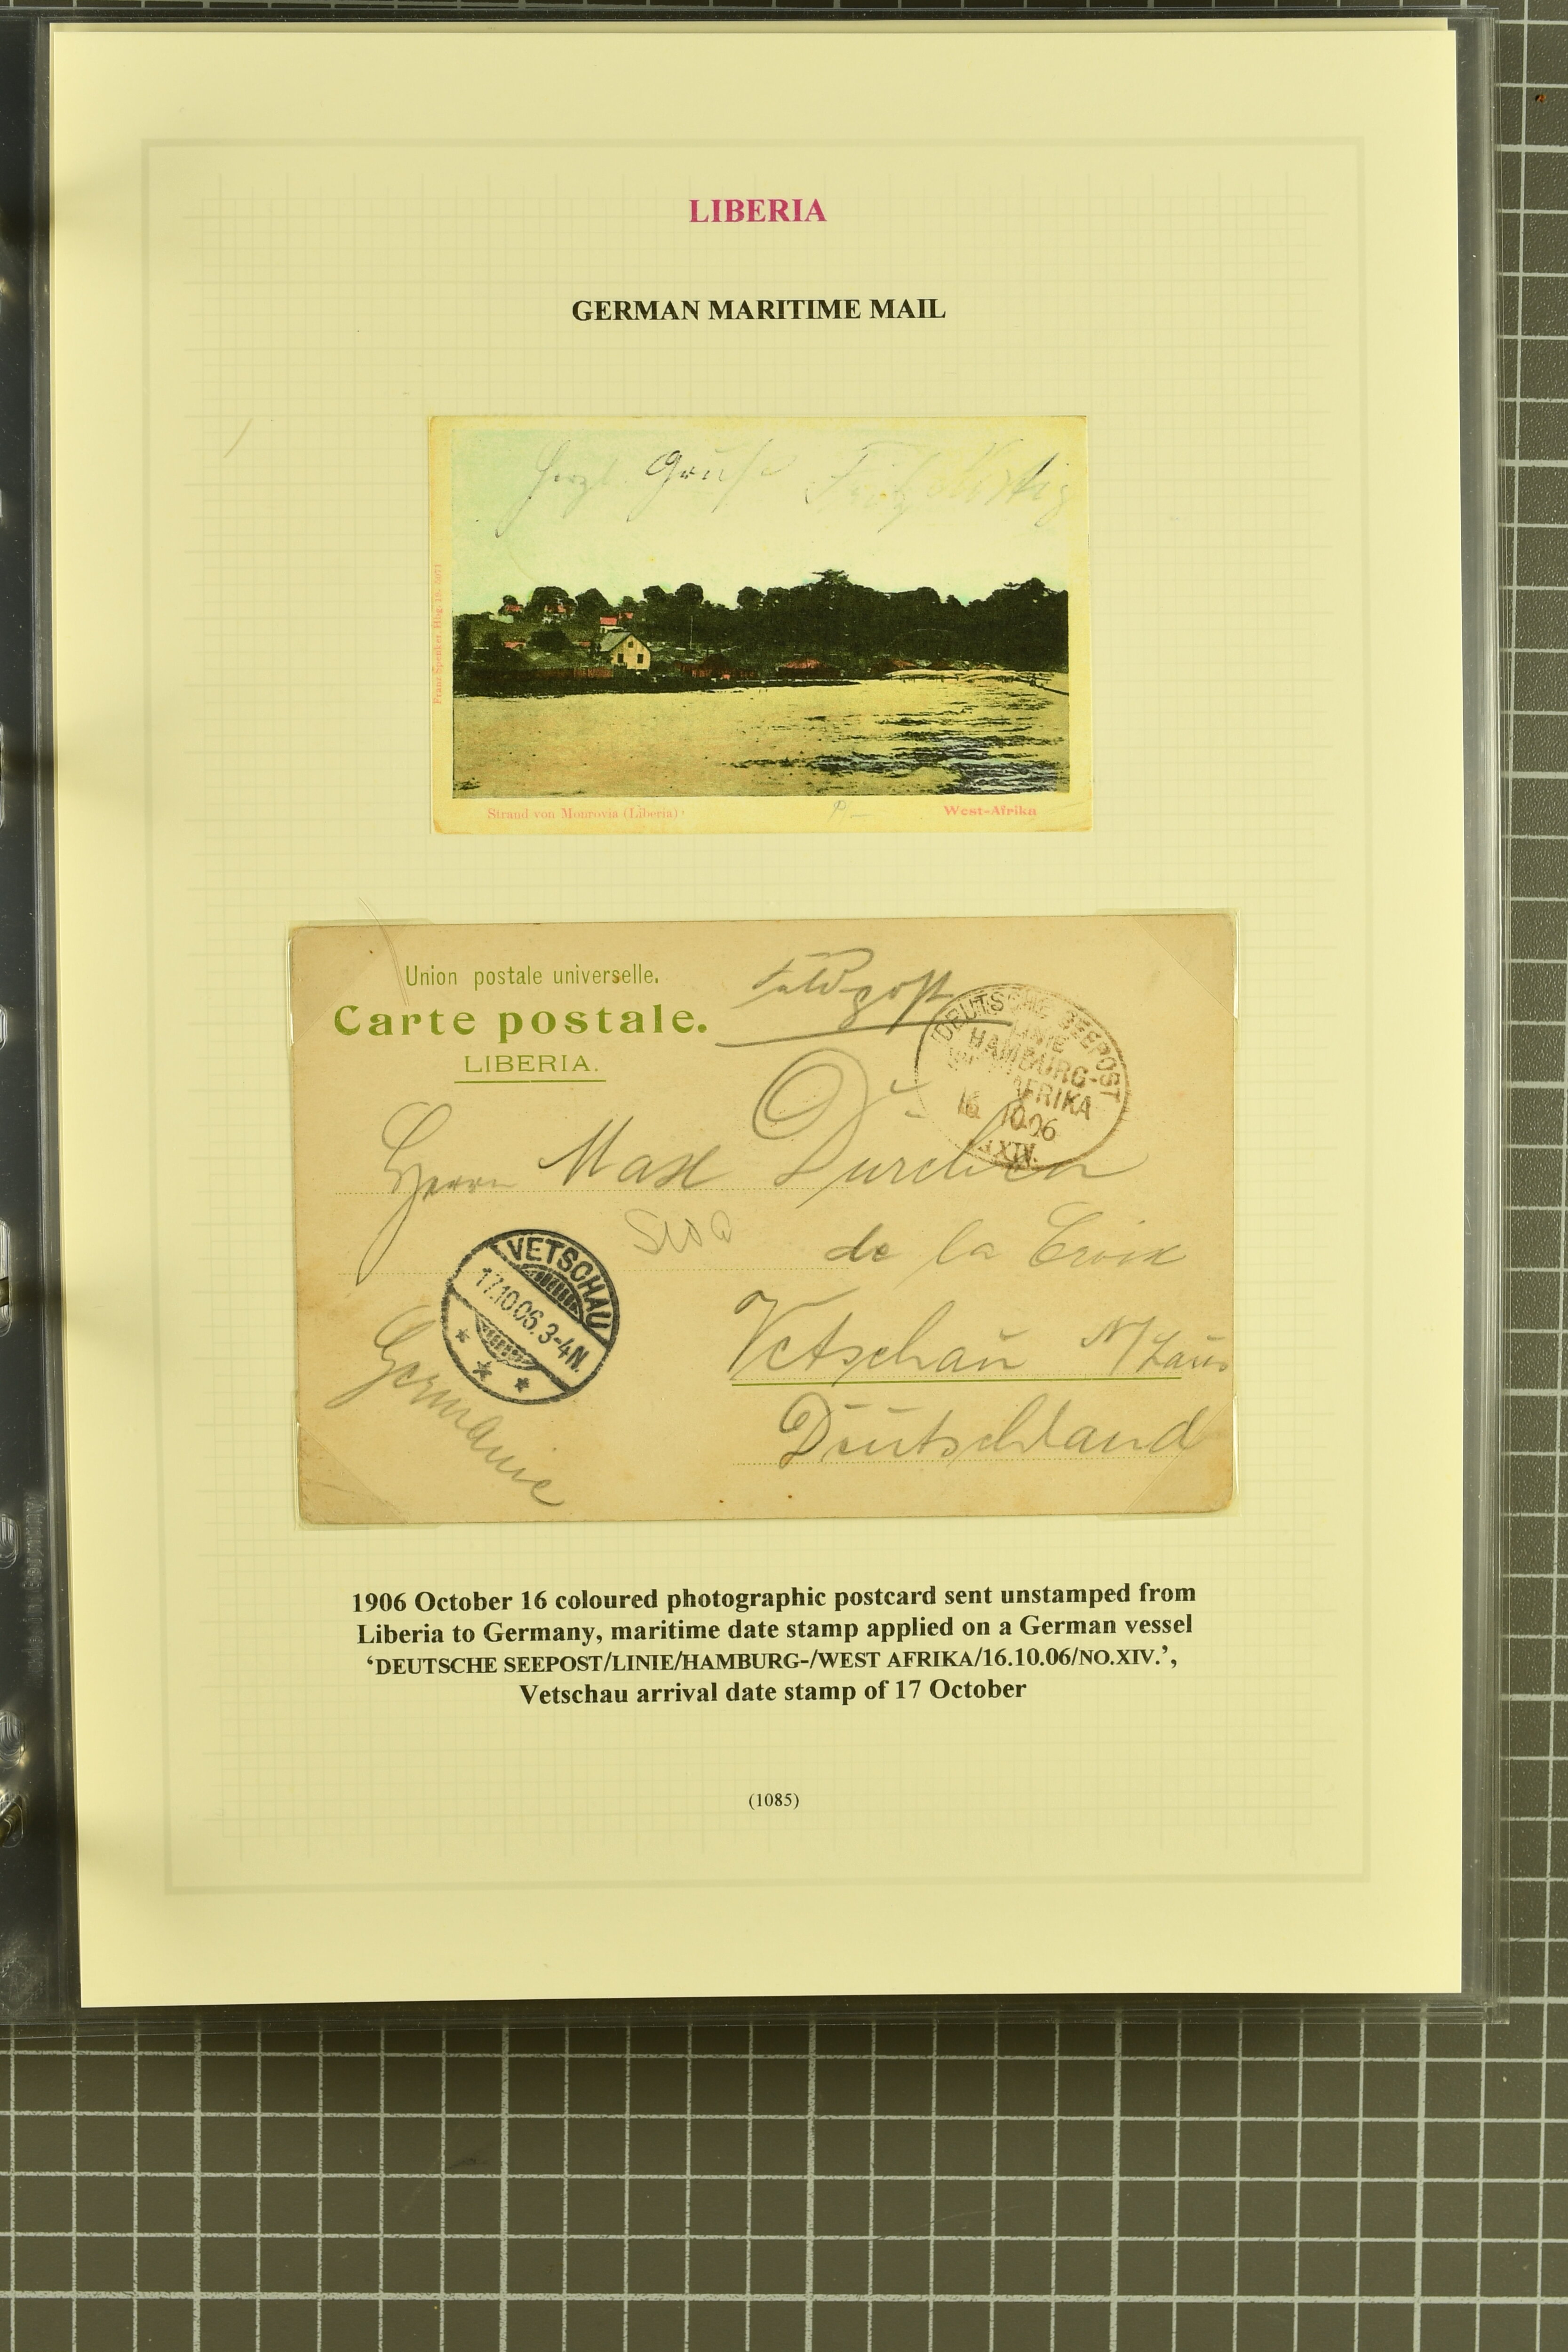 LIBERIA
GERMAN MARITIME MAIL
Herzl. Gruß Fritz
Franz Spenker, Hbg. 18.
Strand von Monrovia (Liberia)
West-Afrika
Union postale universelle.
Carte postale.
LIBERIA.
Feldpost
DEUTSCHE SEEPOST
LINIE
HAMBURG-
AFRIKA
16. 10.06
XIV.
Herrn Max
de la Croix
VETSCHAU
17.10.06.3-4N.
Vetschau N/Laus
Deutschland
Germanie
1906 October 16 coloured photographic postcard sent unstamped from
Liberia to Germany, maritime date stamp applied on a German vessel
‘DEUTSCHE SEEPOST/LINIE/HAMBURG-/WEST AFRIKA/16.10.06/NO.XIV.’,
Vetschau arrival date stamp of 17 October
(1085)